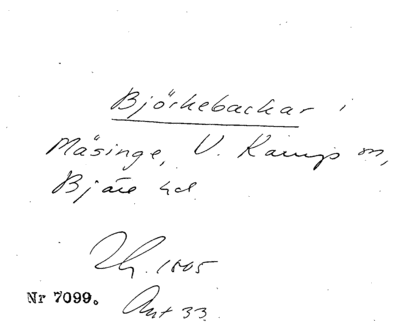 Björkebackar i
Mäsinge, V. Karup sn,
Bjäre hd
1805
Nr 7099. Ant 33.